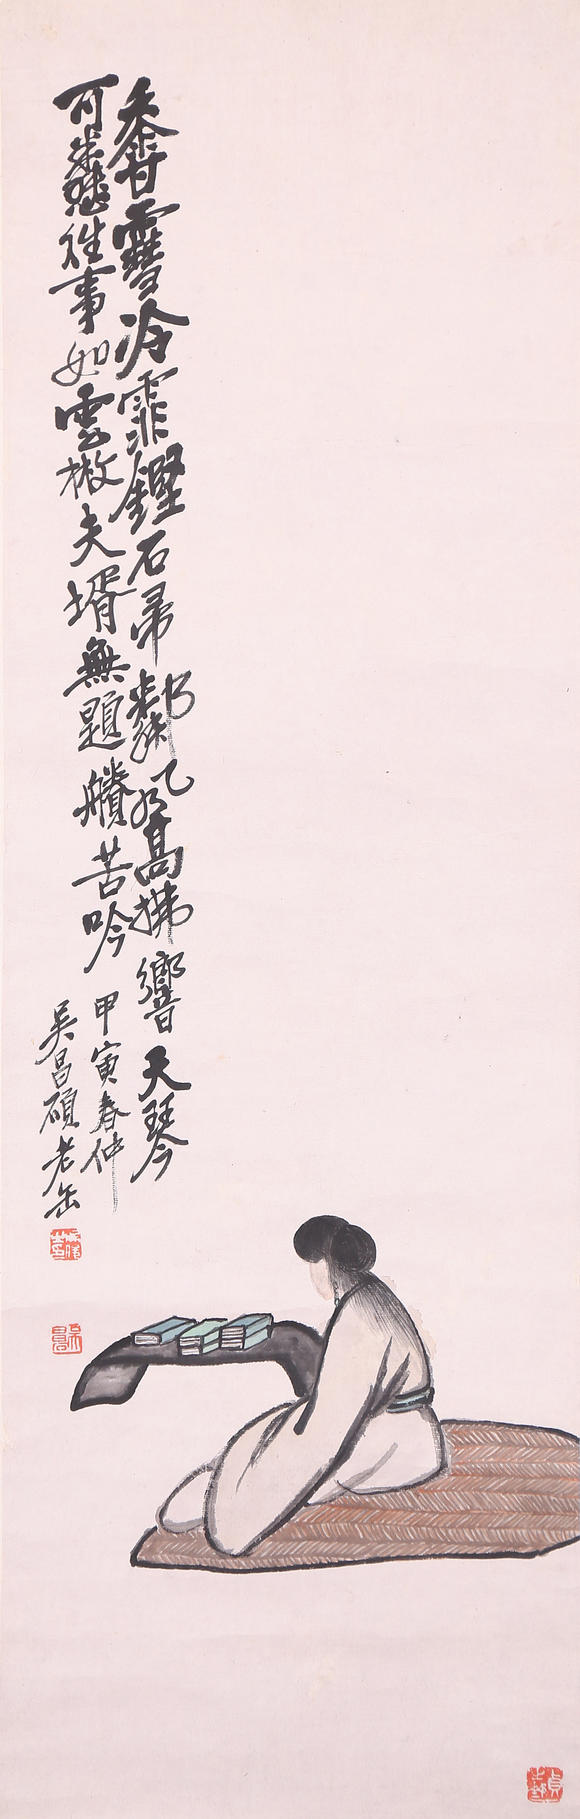 香雪冷霏鏗石帚高拂響天琴
可往事如雲散夫壻無題賸苦吟
甲寅春仲
吳昌碩老缶